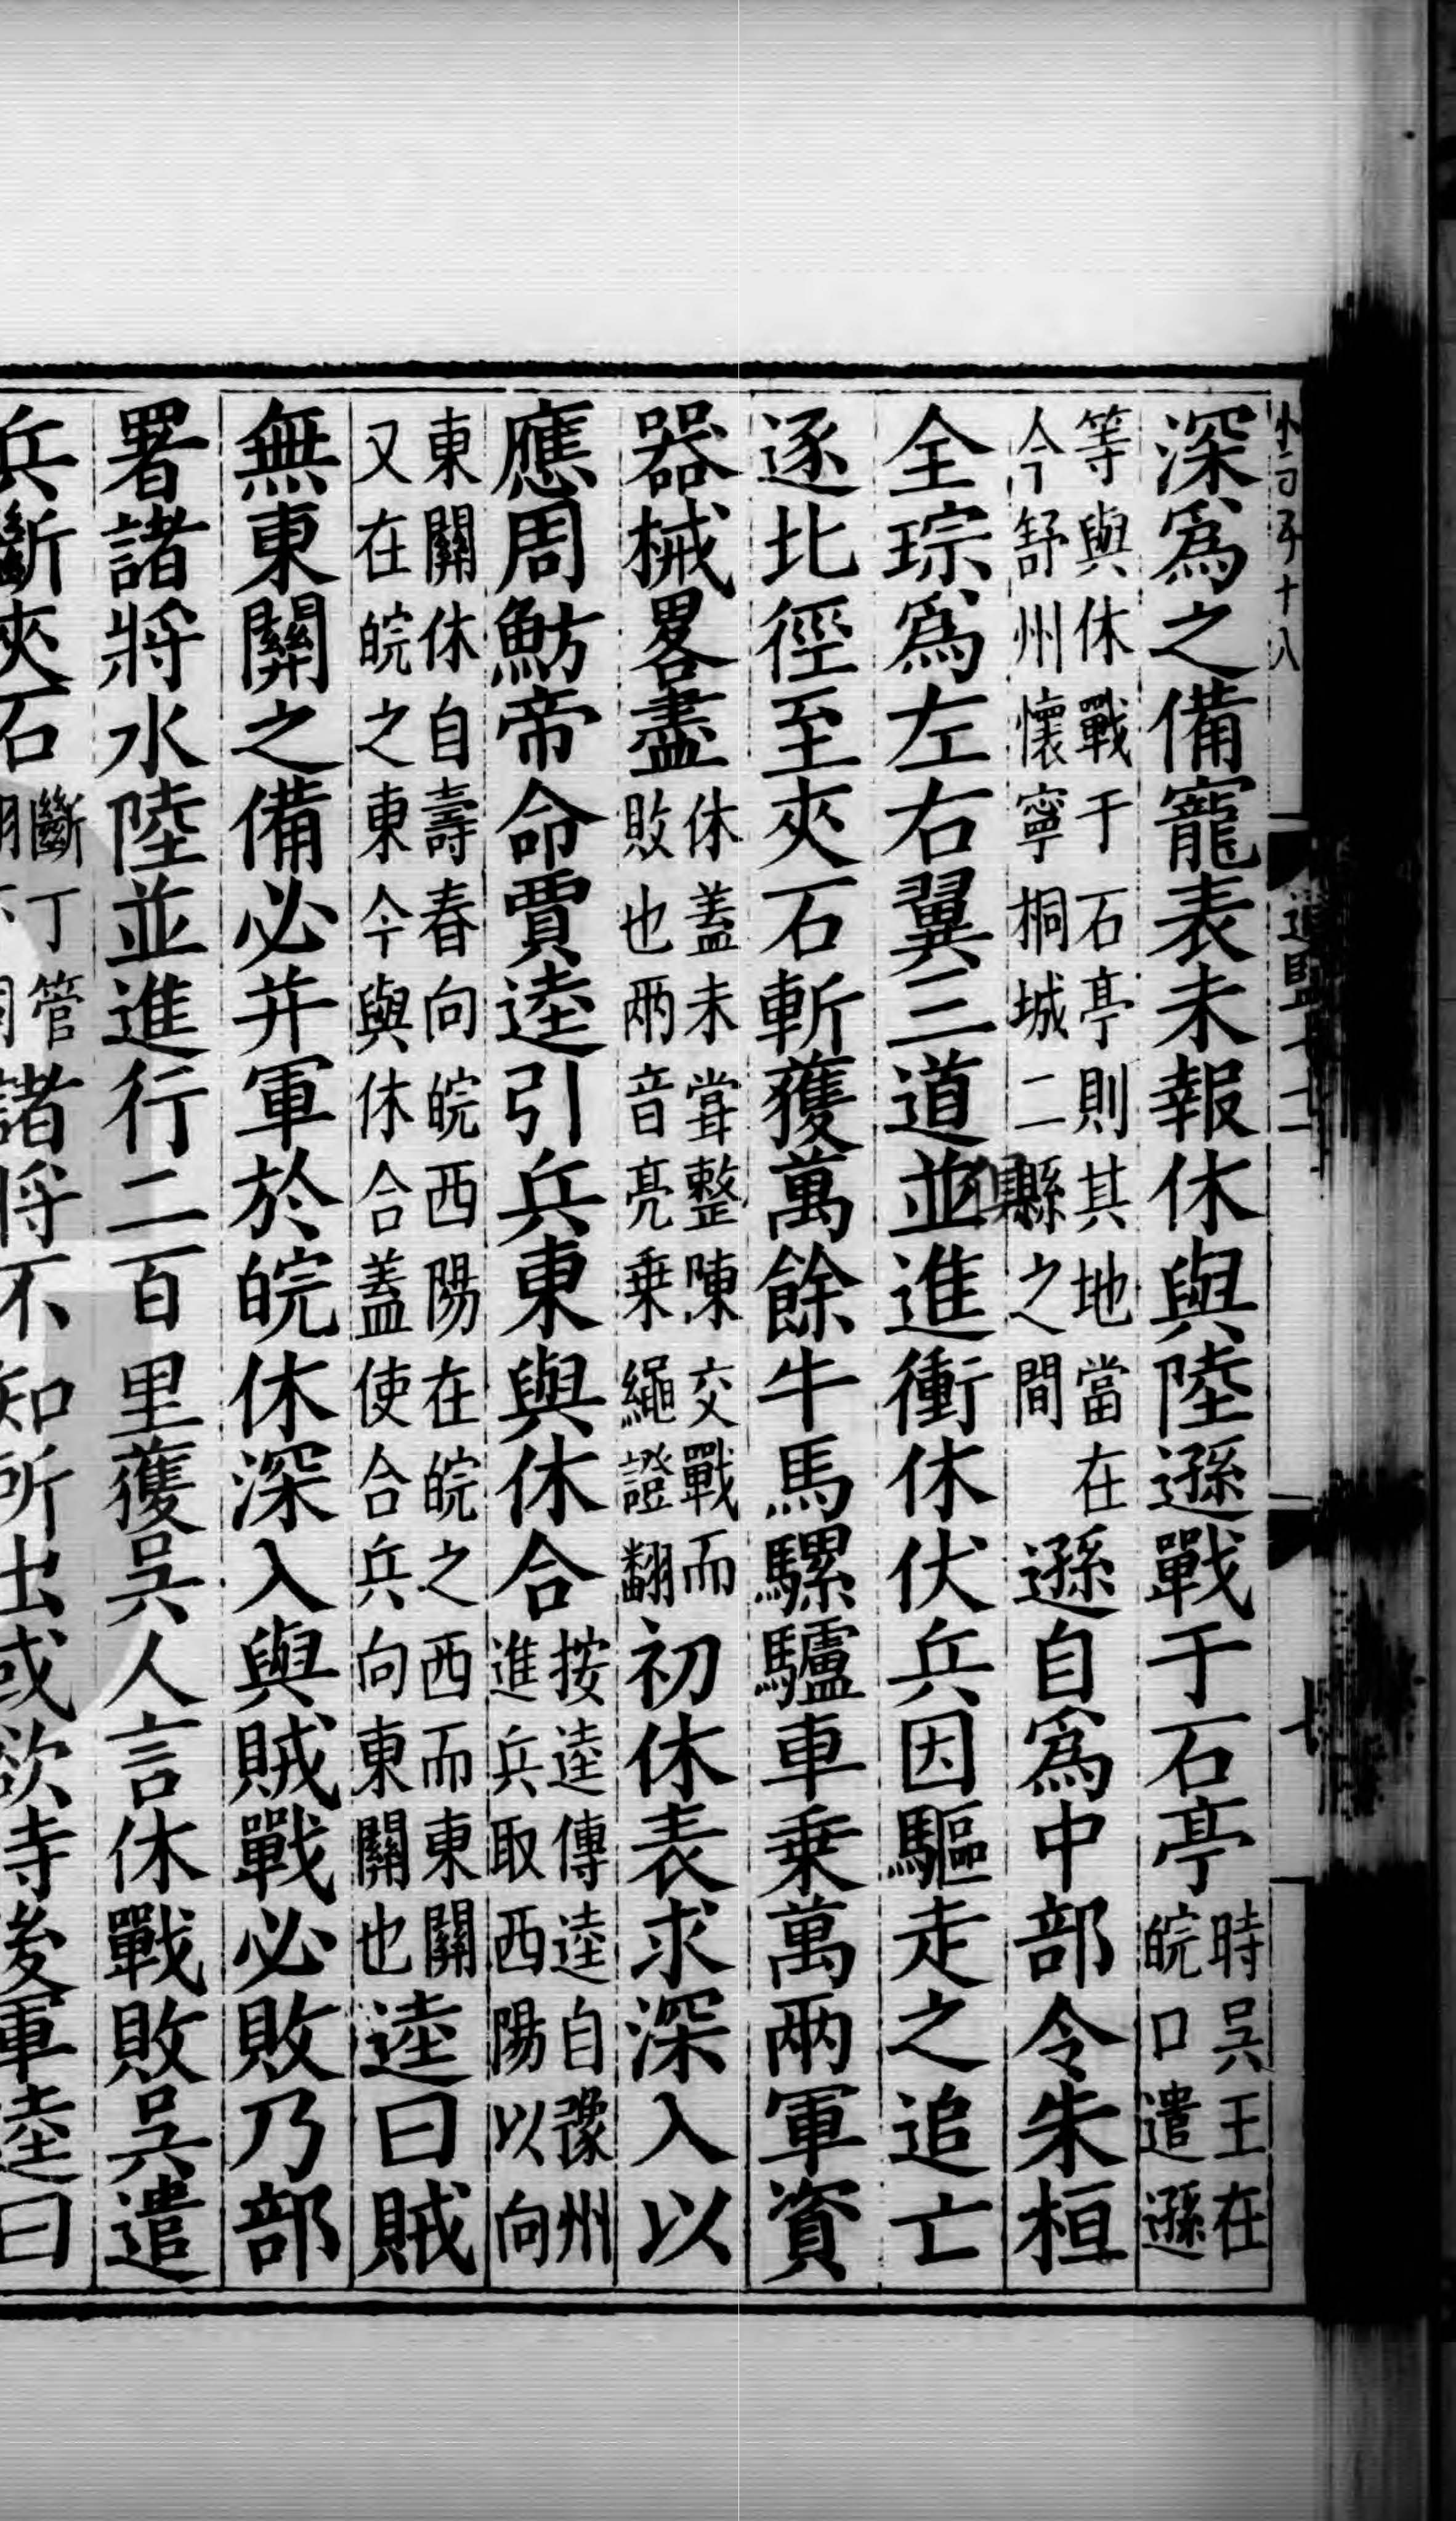 深爲之備寵表未報休與陸遜戰于石亭時吳王在皖口遣遜
等與休戰于石亭則其地當在今舒州懷寧桐城二縣之間遜自爲中部令朱桓
全琮爲左右翼三道並進衝休伏兵因驅走之追亡
逐北徑至夾石斬獲萬餘牛馬騾驢車乗萬兩軍資
器械畧盡休蓋未甞整陳交戰而敗也兩音亮乗繩證翻初休表求深入以
應周魴帝命賈逵引兵東與休合按逵傳逵自豫州進兵取西陽以向
東關休自壽春向皖西陽在皖之西而東關又在皖之東今與休合蓋使合兵向東關也逵曰賊
無東關之備必并軍於皖休深入與賊戰必敗乃部
署諸將水陸並進行二百里獲吳人言休戰敗吳遣
兵斷夾石斷丁管諸將不知所出或欲待後軍逵曰